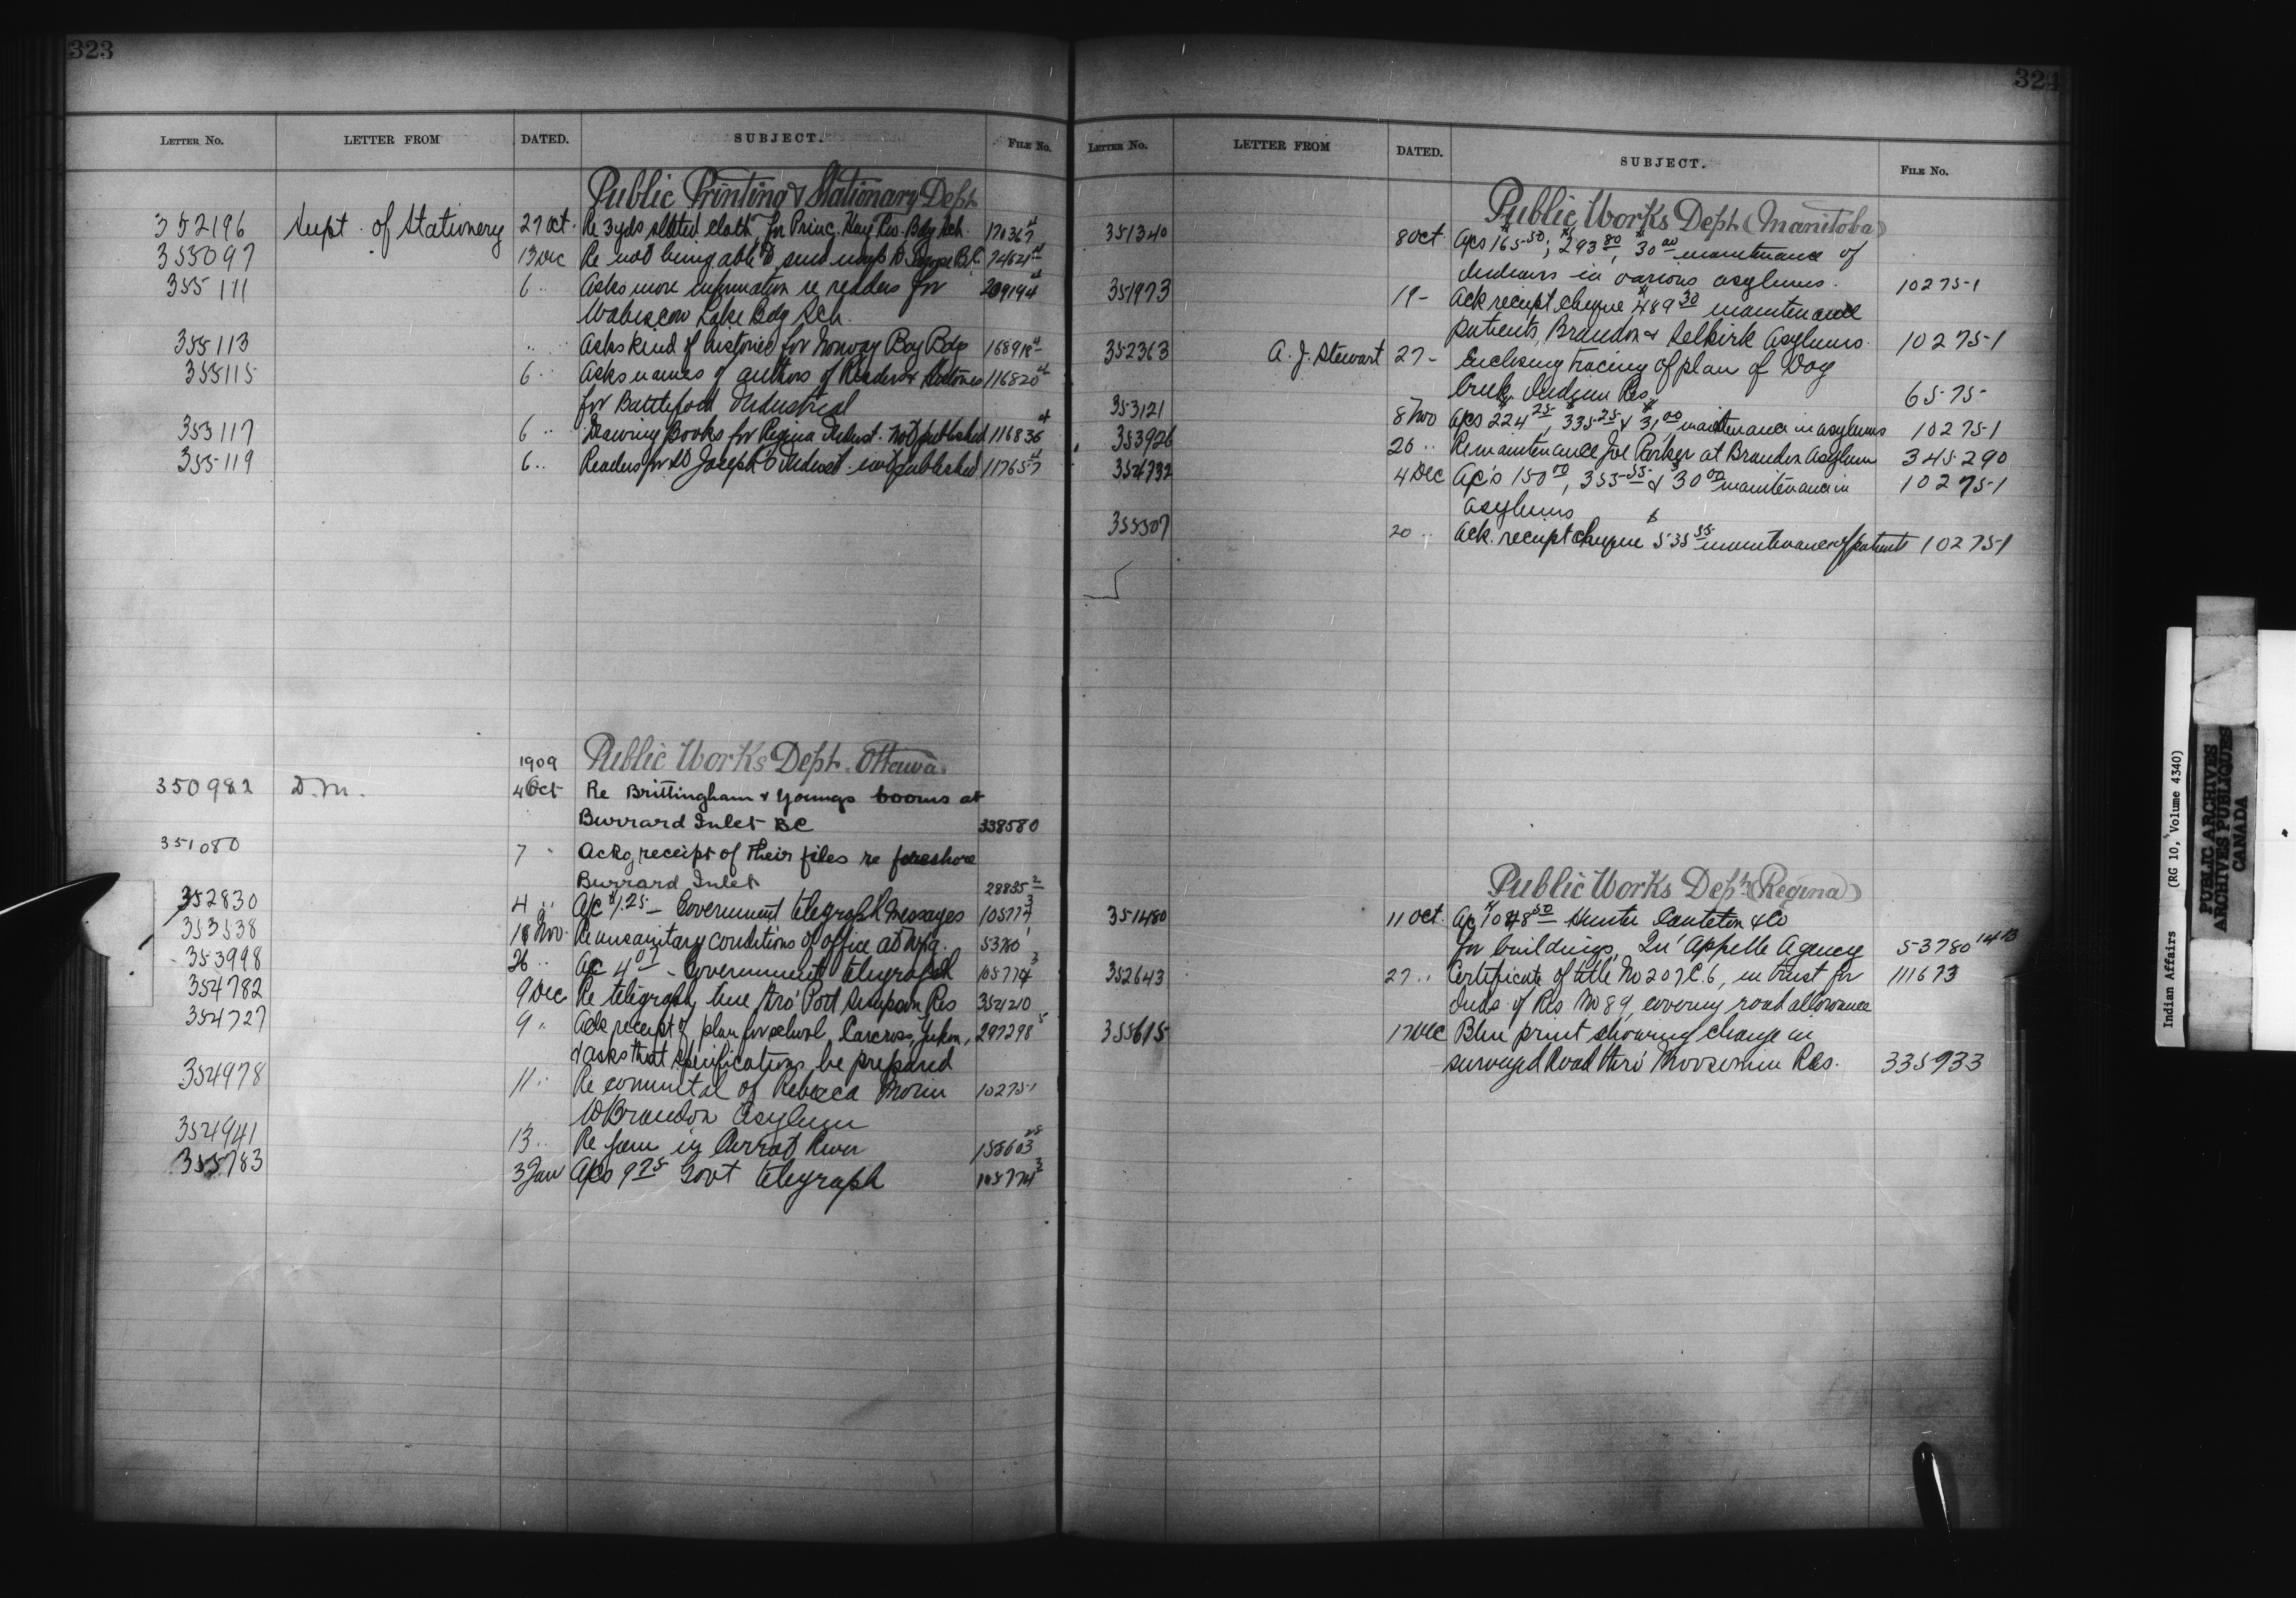 323
LETTER NO. LETTER FROM DATED. SUBJECT. FILE NO.
Public Printing & Stationary Dept
352196 Supt. of Stationery 27 Oct. Re 3 yds slated cloth for Princ. Hay Riv. Bdg Sch.
355097 13 Dec Re not being able to send maps to B.C.
355111 6 " Asks more information re readers for
Wabiscow Lake Bdg Sch.
355113 " " Asks kind of histories for Norway Bdg
355115 6 " Asks names of authors of Readers & Histories 116820
for Battleford Industrial
355117 6 " Drawing Books for Regina Indust. not published 116836
355119 6 " Readers for St Joseph's Indust. not published 117657
1909 Public Works Dept. Ottawa.
350982 D.M. 4 Oct Re Brittingham & Youngs booms at
Burrard Inlet BC 338580
351080 7 " Ackg receipt of their files re foreshore
Burrard Inlet 28835 2
352830 4 " A/c $1.25 - Government telegraph messages 105774 3
353538 18 Nov. Re unsanitary conditions of office at Wpg. 53780 1
353998 26 " A/c 4 07 - Government telegraph 105774 3
354782 9 Dec Re telegraph line thro' Port Simpson Res 354210
354727 9 " Ack receipt of plan for school, Carcross, Yukon, 297278 5
& asks that specifications be prepared
354978 11 " Re committal of Rebecca Morin 10275-1
to Brandon Asylum
354941 13 " Re jam in Carrot River
355783 3 Jan A/cs 9 75 Govt telegraph 105774 3
324
LETTER NO. LETTER FROM DATED. SUBJECT. FILE NO.
Public Works Dept (Manitoba)
351340 8 Oct. A/cs 165 50; 293 80, 30 00 maintenance of
Indians in various asylums. 10275-1
351973 19 - Ack receipt cheque $489 30 maintenance
patients, Brandon & Selkirk Asylums. 10275-1
352363 A. J. Stewart 27 - Enclosing tracing of plan of Dog
Creek Indian Res. 6575-
353121 8 Nov A/cs 224 25, 335 25 & 31 00 maintenance in asylums 10275-1
353926 26 " Re maintenance Joe Parker at Brandon Asylum 345290
354732 4 Dec A/c's 150 00, 355 55 & 30 00 maintenance in 10275-1
asylums
355507 20 " Ack. receipt cheque $535 55 maintenance of patients 10275-1
Public Works Dept (Regina)
351480 11 Oct. A/c $1048 50 Hunter & Co
for buildings, Qu'Appelle Agency 53780 1413
352643 27 " Certificate of title No 207 C.6, in trust for 111673
Inds. of Res No 89, covering road allowance
355615 17 Dec Blue print showing change in
surveyed Road thro' Moosomin Res. 335933
Indian Affairs (RG 10, Volume 4340)
PUBLIC ARCHIVES
ARCHIVES PUBLIQUES
CANADA